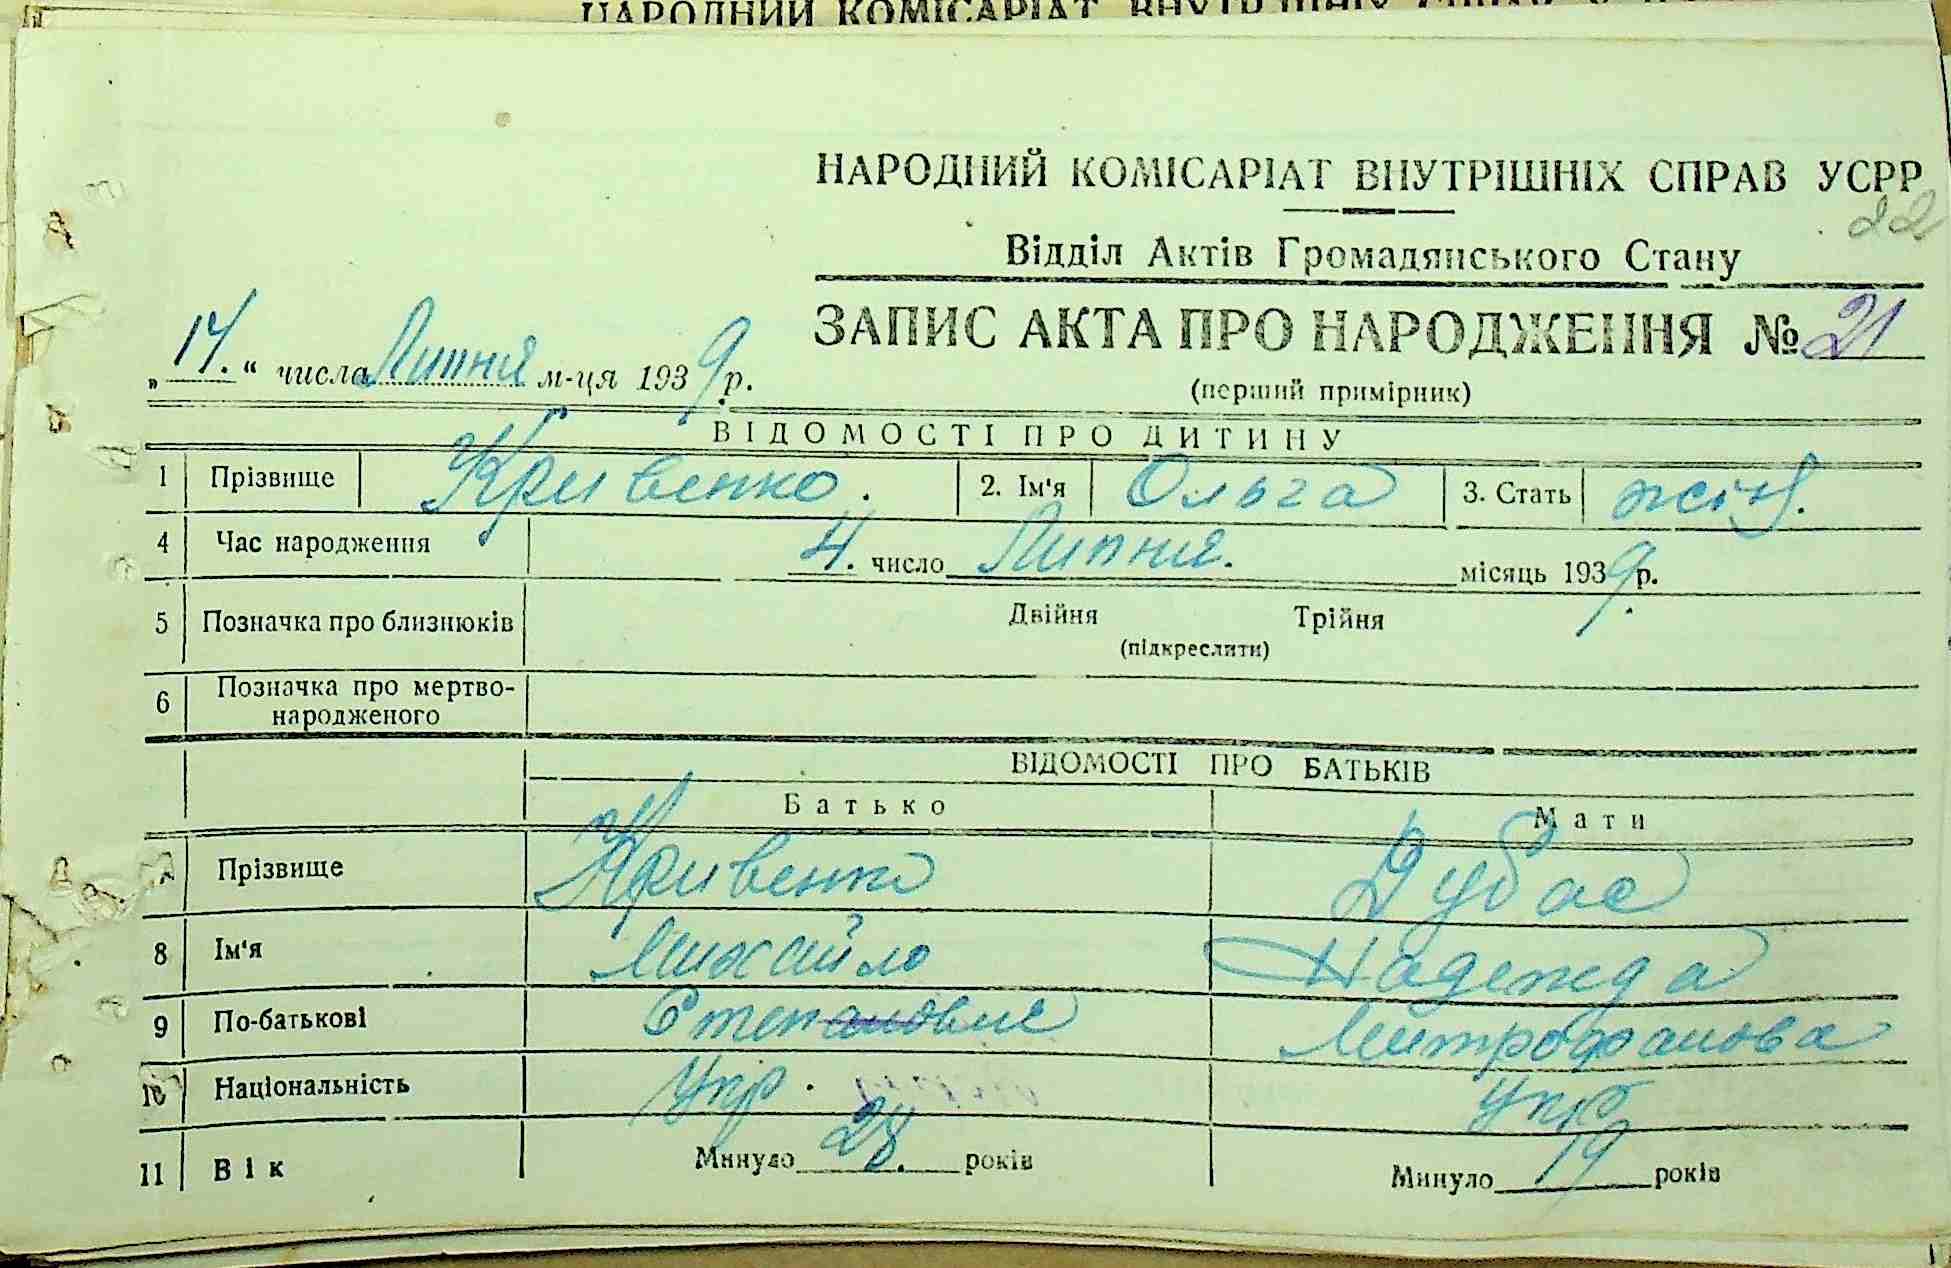 НАРОДНИЙ КОМІСАРІАТ ВНУТРІШНІХ СПРАВ
НАРОДНИЙ КОМІСАРІАТ ВНУТРІШНІХ СПРАВ УСРР
22
Відділ Актів Громадянського Стану
ЗАПИС АКТА ПРО НАРОДЖЕННЯ № 21
„14.“ числа Липня м-ця 1939 р.
(перший примірник)
ВІДОМОСТІ ПРО ДИТИНУ
1 Прізвище Кривенко. 2. Ім'я Ольга 3. Стать жін.
4 Час народження 4. число Липня. місяць 1939 р.
5 Позначка про близнюків Двійня Трійня
(підкреслити)
6 Позначка про мертво-
народженого
ВІДОМОСТІ ПРО БАТЬКІВ
Батько Мати
7 Прізвище Кривенко Дубас
8 Ім'я Михайло Надежда
9 По-батькові Степанович Митрофанова
10 Національність Укр. Укр
11 Вік Минуло 28. років Минуло 19 років